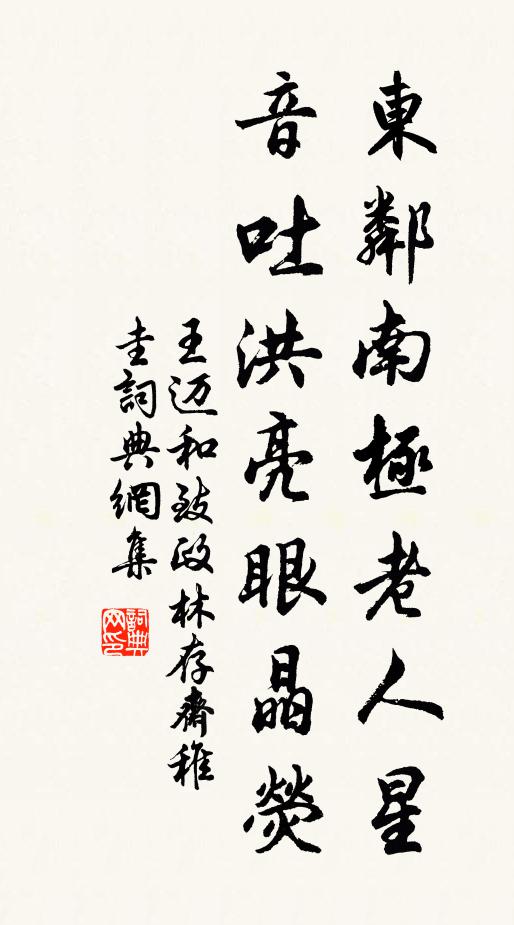 東鄰南極老人星
音吐洪亮眼晶熒
王迈和致政林存齋稚
圭詞典網集
詞典网印